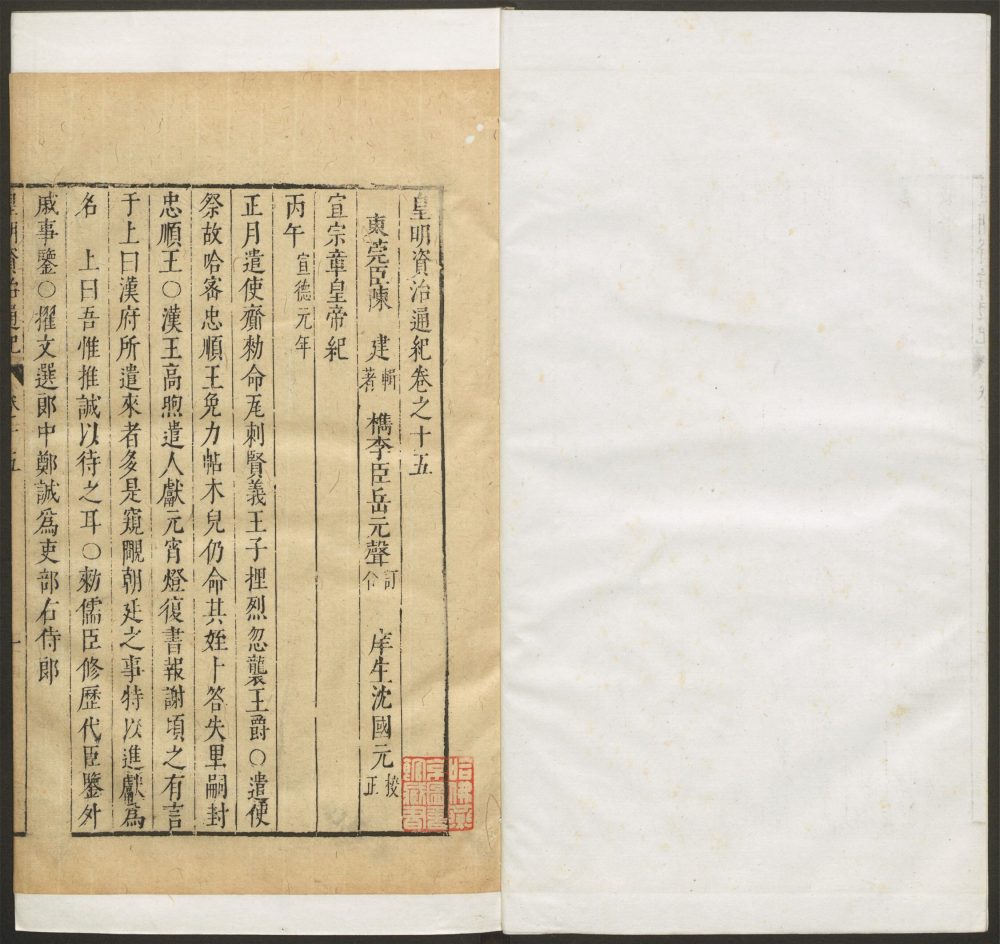 皇明資治通紀卷之十五
東莞臣陳建輯著 檇李臣岳元聲訂合 庠生沈國元挍正
宣宗章皇帝紀
丙午宣德元年
正月遣使齎勑命瓦剌賢義王子捏烈忽襲王爵○遣使
祭故哈密忠順王免力帖木兒仍命其姪卜答失里嗣封
忠順王○漢王高煦遣人獻元宵燈復書報謝頃之有言
于上曰漢府所遣來者多是窺覸朝廷之事特以進獻為
名 上曰吾惟推誠以待之耳○勑儒臣修歷代臣鑒外
戚事鑒○擢文選郎中鄭誠爲吏部右侍郎
皇明資治通紀 卷十五 一
哈佛燕京圖書館藏書